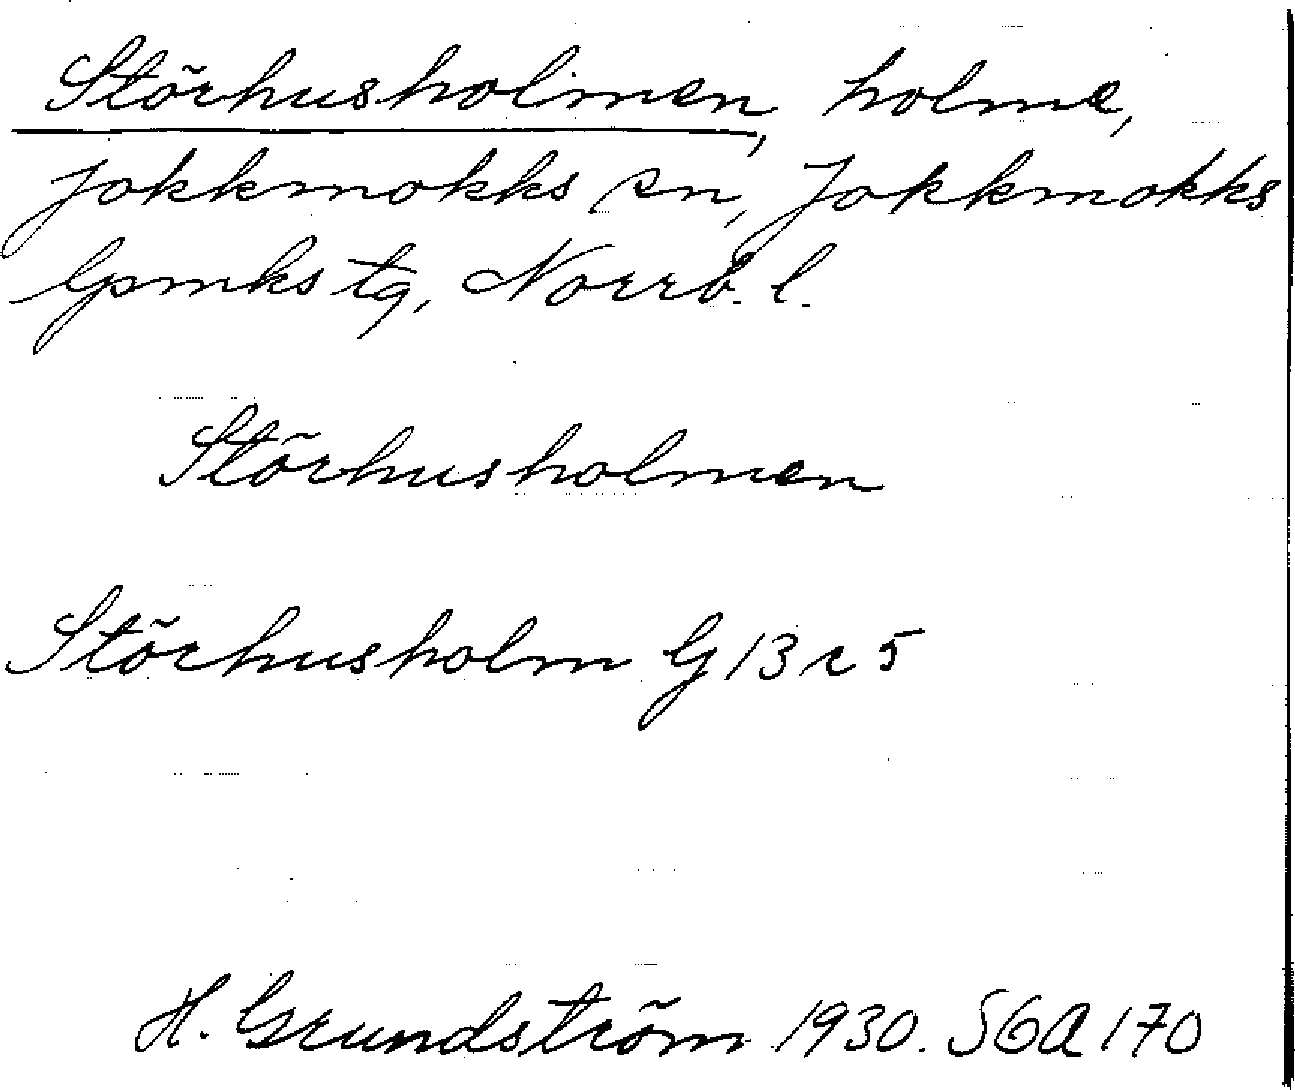 Störhusholmen, holme,
Jokkmokks sn, Jokkmokks
lpmks tg, Norrb. l.
Störhusholmen
Störhusholm G 13 r 5
H. Grundström 1930. SGA 170